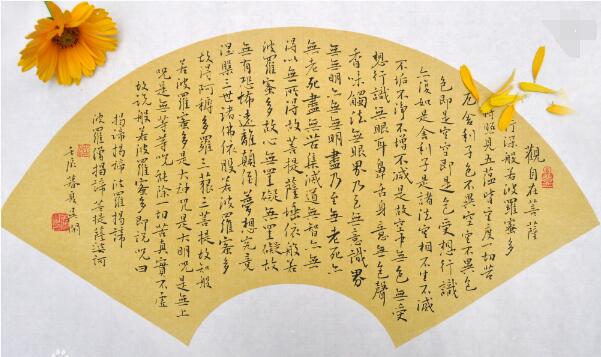 觀自在菩薩
行深般若波羅蜜多
時照見五蘊皆空度一切苦
厄舍利子色不異空空不異色
色即是空空即是色受想行識
亦復如是舍利子是諸法空相不生不滅
不垢不淨不增不減是故空中無色無受
想行識無眼耳鼻舌身意無色聲
香味觸法無眼界乃至無意識界
無無明亦無無明盡乃至無老死亦
無老死盡無苦集滅道無智亦無
得以無所得故菩提薩埵依般若
波羅蜜多故心無罣礙無罣礙故
無有恐怖遠離顛倒夢想究竟
涅槃三世諸佛依般若波羅蜜多
故得阿耨多羅三藐三菩提故知般
若波羅蜜多是大神咒是大明咒是無上
咒是無等等咒能除一切苦真實不虛
故說般若波羅蜜多即說咒曰
揭諦揭諦 波羅揭諦
波羅僧揭諦 菩提薩婆訶